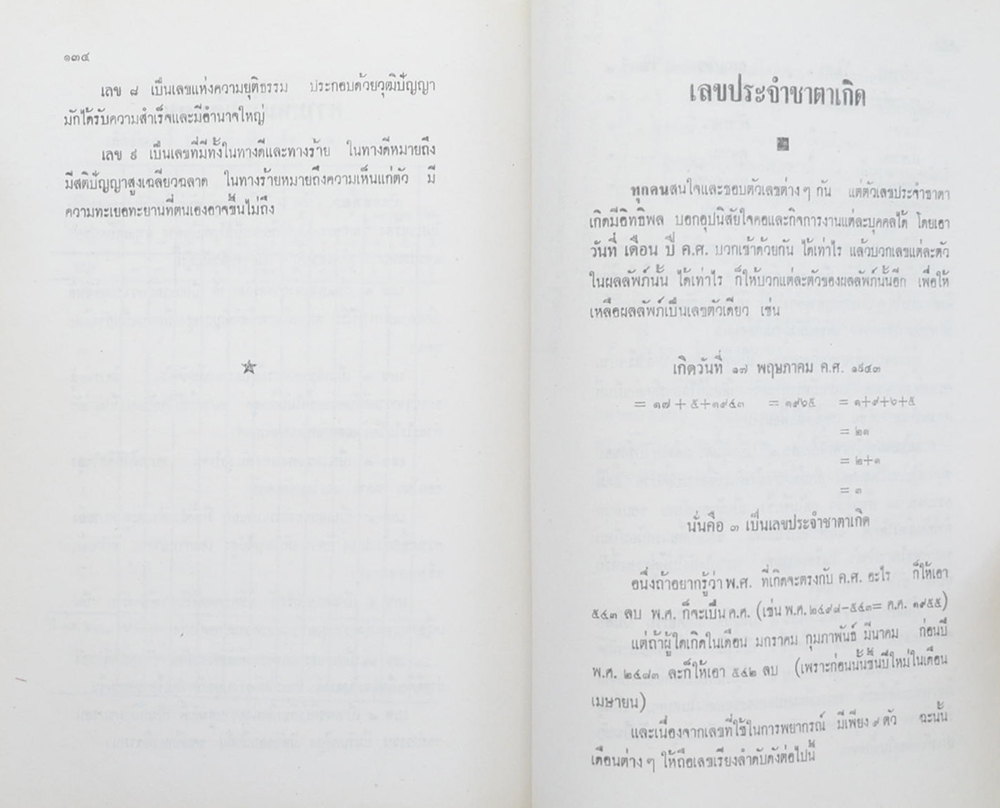 ๑๓๔
เลข ๘ เป็นเลขแห่งความยุติธรรม ประกอบด้วยวุฒิปัญญา
มักได้รับความสำเร็จและมีอำนาจใหญ่
เลข ๙ เป็นเลขที่มีทั้งในทางดีและทางร้าย ในทางดีหมายถึง
มีสติปัญญาสูงเฉลียวฉลาด ในทางร้ายหมายถึงความเห็นแก่ตัว มี
ความทะเยอทะยานที่ตนเองอาจขึ้นไม่ถึง
เลขประจำชาตาเกิด
ทุกคนสนใจและชอบตัวเลขต่าง ๆ กัน แต่ตัวเลขประจำชาตา
เกิดมีอิทธิพล บอกอุปนิสัยใจคอและกิจการงานแต่ละบุคคลได้ โดยเอา
วันที่ เดือน ปี ค.ศ. บวกเข้าด้วยกัน ได้เท่าไร แล้วบวกเลขแต่ละตัว
ในผลลัพภ์นั้น ได้เท่าไร ก็ให้บวกแต่ละตัวของผลลัพภ์นั้นอีก เพื่อให้
เหลือผลลัพภ์เป็นเลขตัวเดียว เช่น
เกิดวันที่ ๑๗ พฤษภาคม ค.ศ. ๑๙๔๓
= ๑๗ + ๕+๑๙๔๓ = ๑๙๖๕ = ๑+๙+๖+๕
= ๒๑
= ๒+๑
= ๓
นั่นคือ ๓ เป็นเลขประจำชาตาเกิด
อนึ่งถ้าอยากรู้ว่า พ.ศ. ที่เกิดจะตรงกับ ค.ศ. อะไร ก็ให้เอา
๕๔๓ ลบ พ.ศ. ก็จะเป็น ค.ศ. (เช่น พ.ศ. ๒๔๙๘-๕๔๓= ค.ศ. ๑๙๕๕)
แต่ถ้าผู้ใดเกิดในเดือน มกราคม กุมภาพันธ์ มีนาคม ก่อนปี
พ.ศ. ๒๔๘๓ ละก็ให้เอา ๕๔๒ ลบ (เพราะก่อนนั้นขึ้นปีใหม่ในเดือน
เมษายน)
และเนื่องจากเลขที่ใช้ในการพยากรณ์ มีเพียง ๙ ตัว ฉะนั้น
เดือนต่าง ๆ ให้ถือเลขเรียงลำดับดังต่อไปนี้